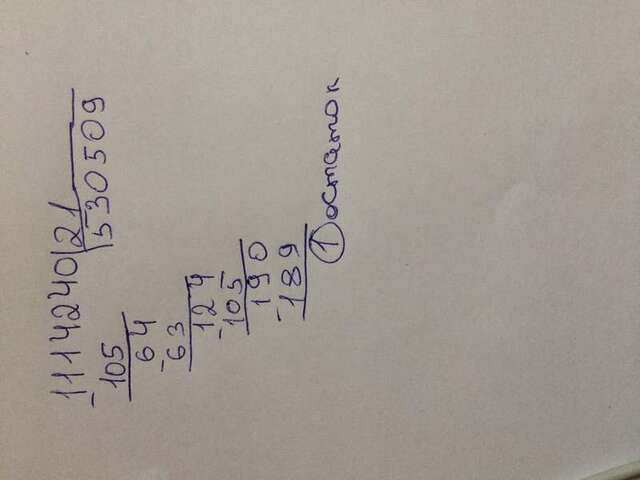 1114240 21
- 105 530509
64
- 63
124
- 105
190
- 189
1 остаток